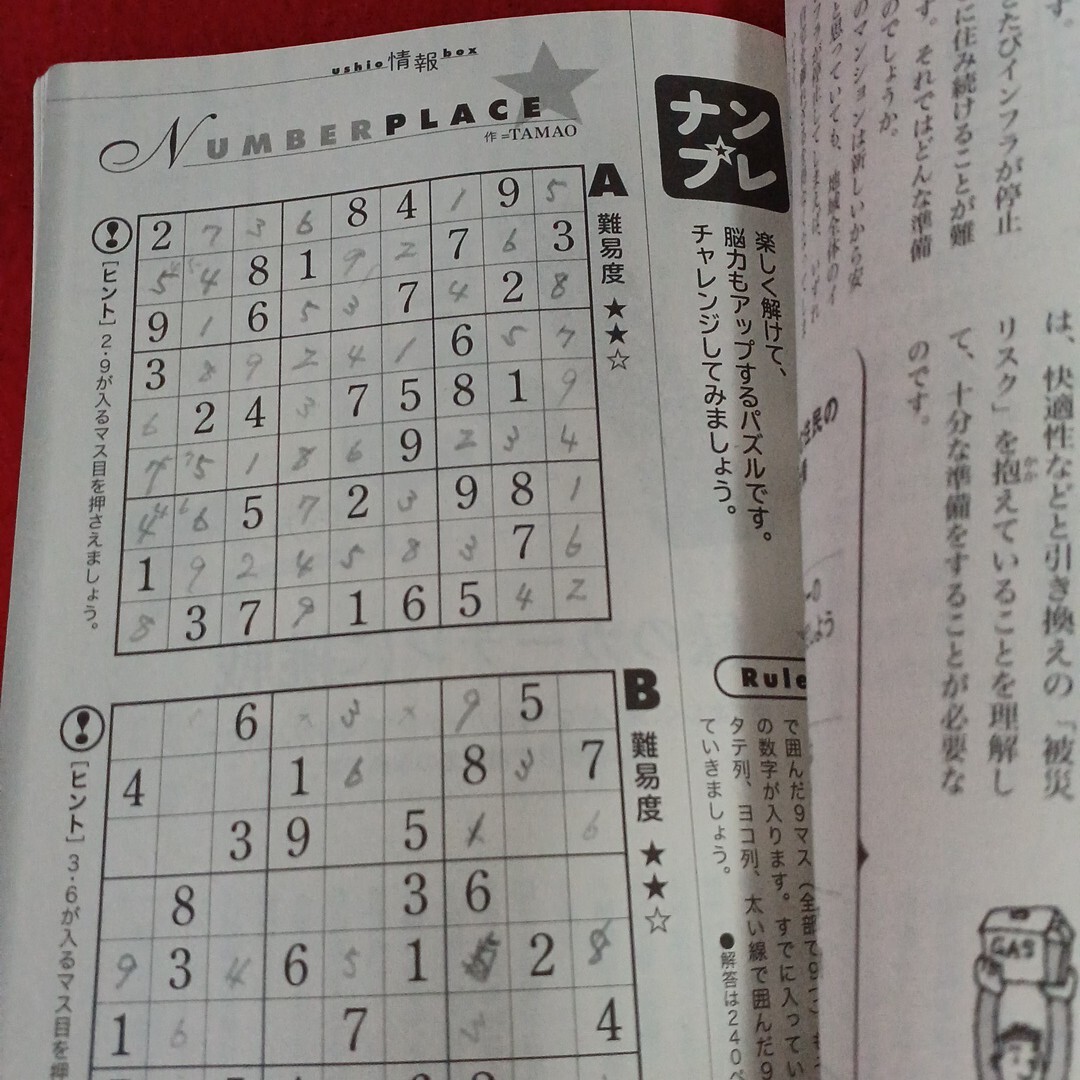 ushio情報box
NUMBERPLACE
作=TAMAO
ナン
プレ
楽しく解けて、
脳力もアップするパズルです。
チャレンジしてみましょう。
A
難易度 ★★☆
[ヒント] 2・9が入るマス目を押さえましょう。
2 7 3 6 8 4 1 9 5
5 4 8 1 9 2 7 6 3
9 1 6 5 3 7 4 2 8
3 8 9 2 4 1 6 5 7
6 2 4 3 7 5 8 1 9
7 5 1 8 6 9 2 3 4
4 6 5 7 2 3 9 8 1
1 9 2 4 5 8 3 7 6
8 3 7 9 1 6 5 4 2
B
難易度 ★★☆
[ヒント] 3・6が入るマス目を押
6 3 9 5
4 1 6 8 3 7
3 9 5 6
8 3 6
9 3 4 6 5 1 2
1 6 7 3 4
Rule
で囲んだ9マス(全部で9つ
の数字が入ります。すでに入ってい
タテ列、ヨコ列、太い線で囲んだ9
ていきましょう。
●解答は240ペ
す。
たびインフラが停止
に住み続けることが難
す。それではどんな準備
のでしょうか。
のマンションは新しいから安
と思っていても、地域全体のイ
は、快適性などと引き換えの「被災
リスク」を抱えていることを理解し
て、十分な準備をすることが必要な
のです。
住民の
GAS